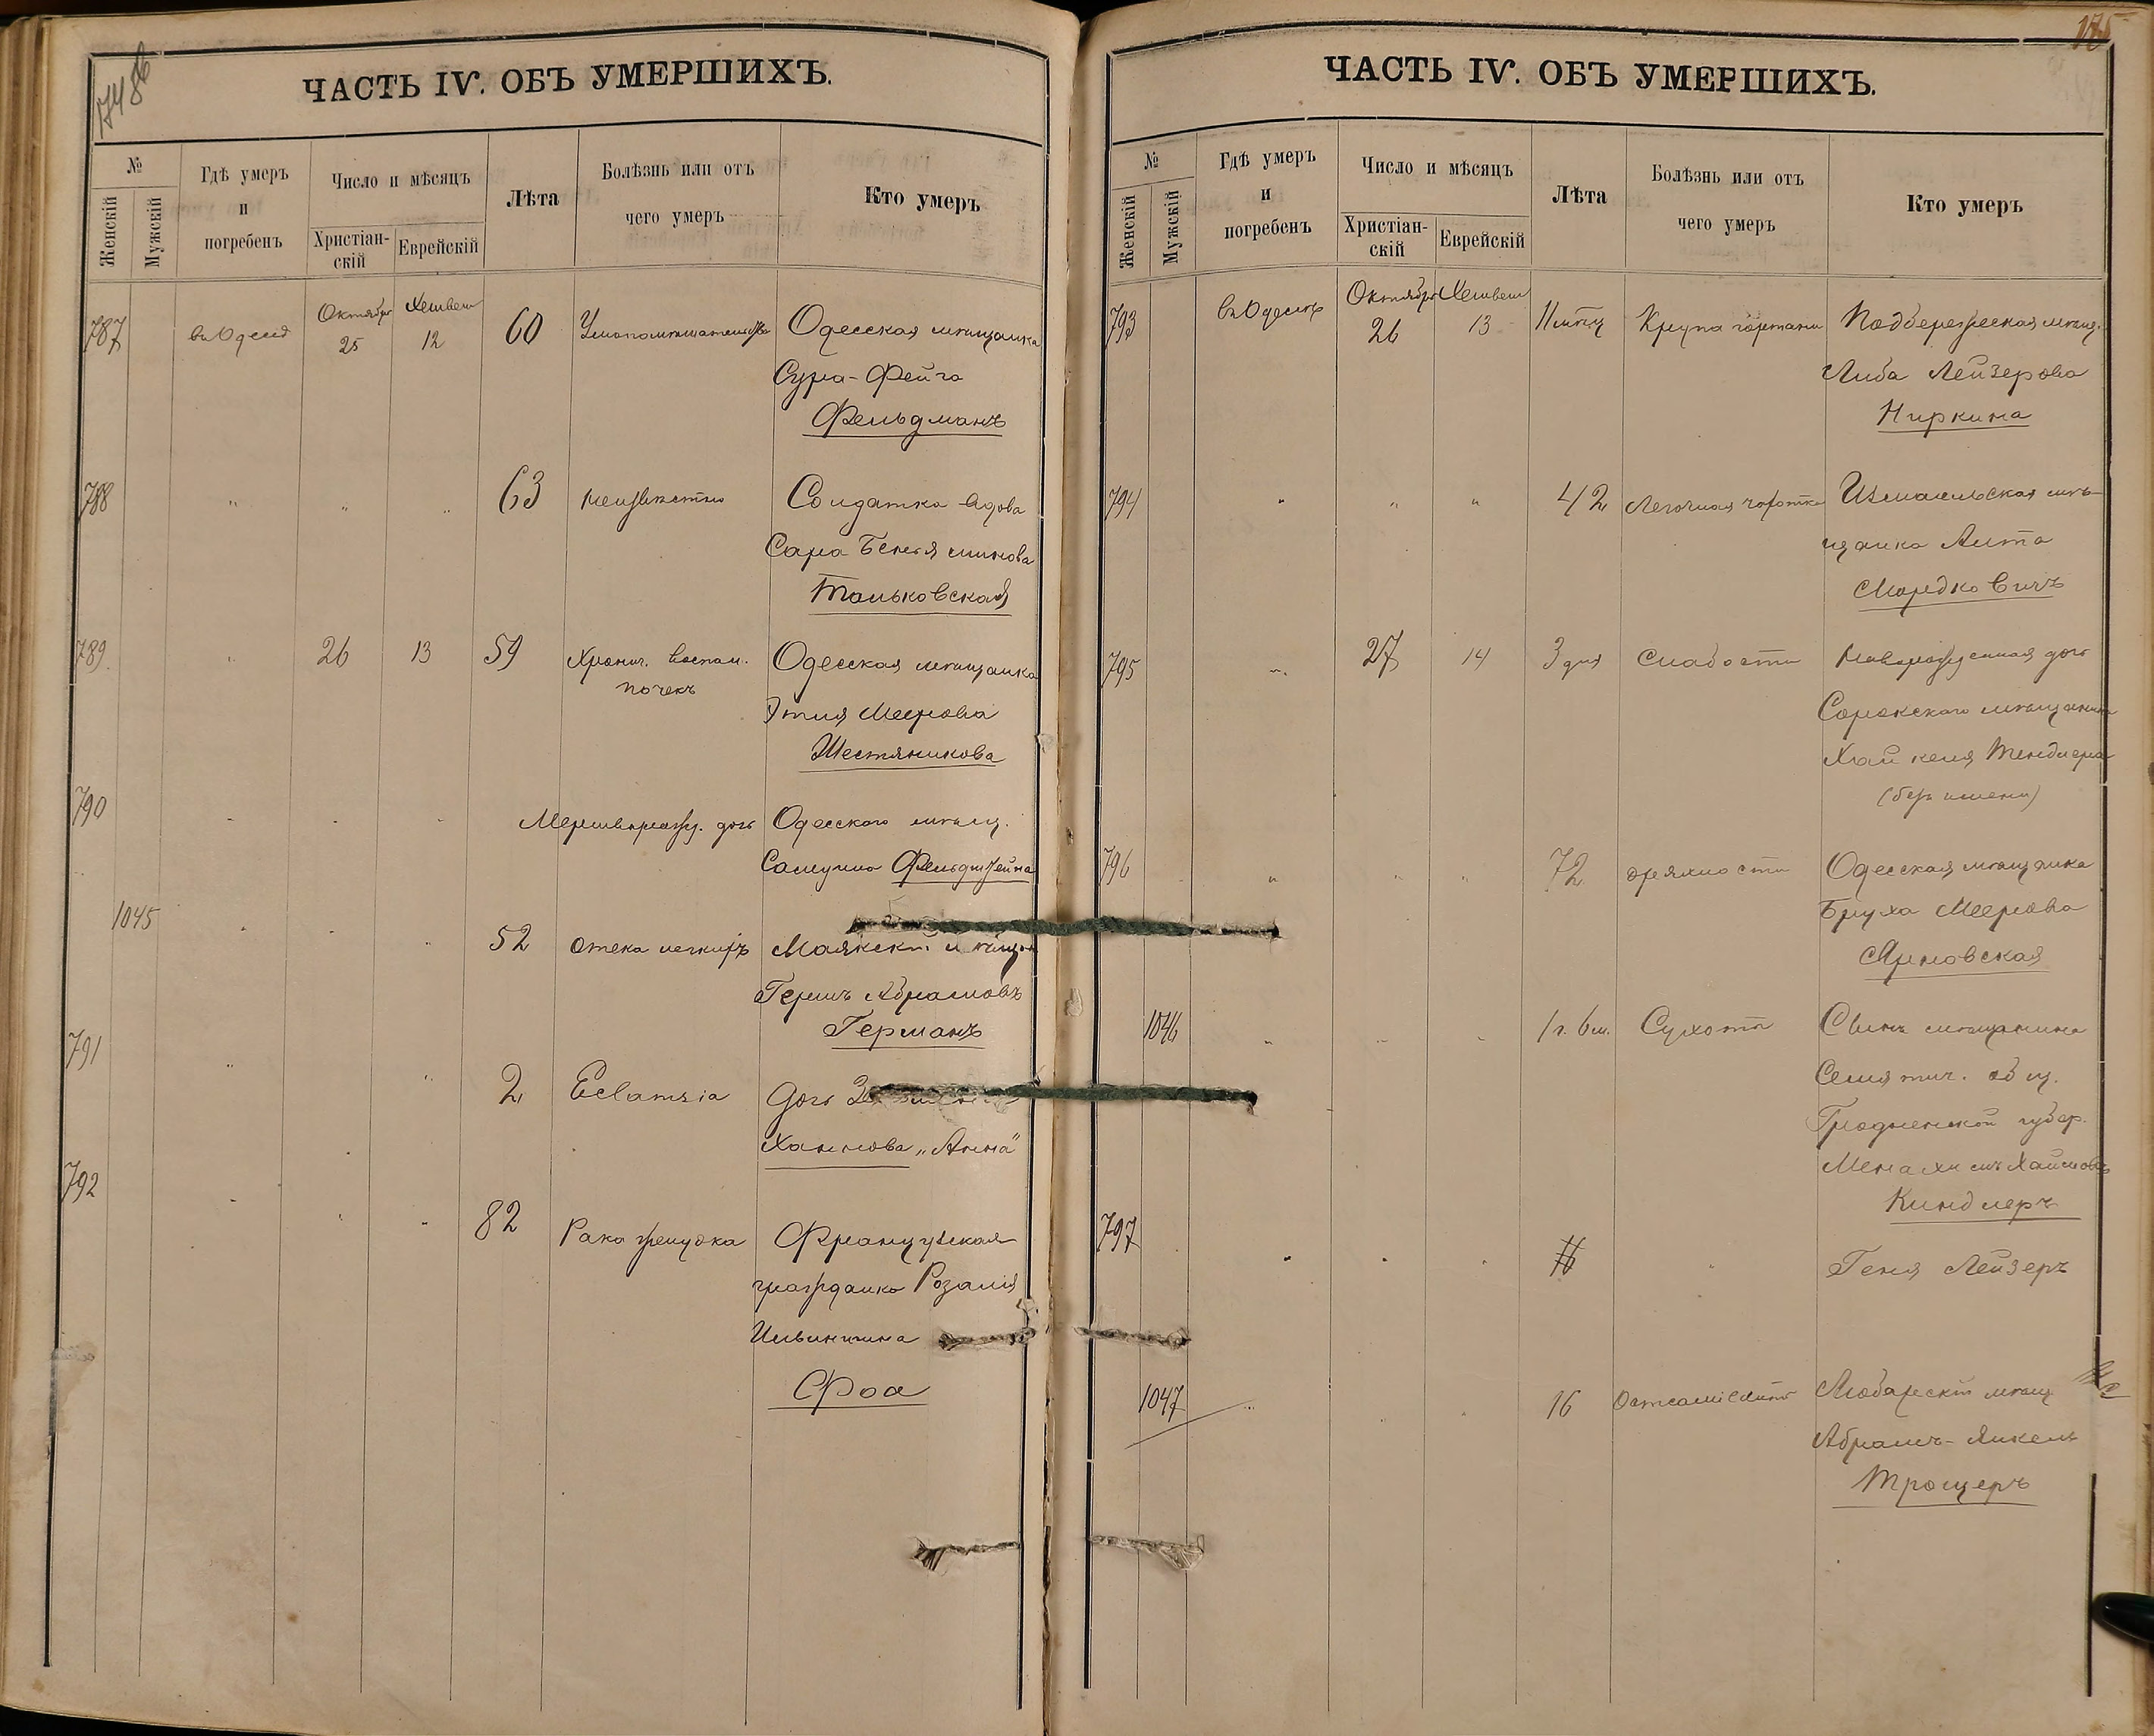 ЧАСТЬ IV. ОБЪ УМЕРШИХЪ.
№
Женскій
Мужскій
Гдѣ умеръ
и
погребенъ
Число и мѣсяцъ
Христіан-
скій
Еврейскій
Лѣта
Болѣзнь или отъ
чего умеръ
Кто умеръ
787 Октября 25 12 60 Одесская мѣщанка
Сура-Фейга
Фельдманъ
788 " " " 63 неизвѣстно Солдатка вдова
Сара Беньяминова
Тальковская
789 " 26 13 59 Хронич. воспал. Одесская мѣщанка
почекъ
Этля Меерова
Шестяникова
790 " " " Мертворожд. дочь Одесскаго мѣщ.
Самуила Фельдштейна
1045 " " " 52 отека легкихъ Маякскій
Гершъ Абрамовъ
Германъ
791 " " 2 дочь
Хаимова „Анна"
792 " " " 82 Рака желудка Французская
гражданка Розалія
Фоа
ЧАСТЬ IV. ОБЪ УМЕРШИХЪ.
№
Женскій
Мужскій
Гдѣ умеръ
и
погребенъ
Число и мѣсяцъ
Христіан-
скій
Еврейскій
Лѣта
Болѣзнь или отъ
чего умеръ
Кто умеръ
793 въ Одессѣ Октября 26 13 11 мѣсц Крупа гортани
Либа Лейзерова
Ниркина
794 " " " 42 Легочная чахотка Измаильская мѣ-
щанка
Мордковичъ
795 " 27 14 3 дня Слабости Новорожденная дочь
Сорокскаго мѣщанина
Хайкеля Тендлера
(безъ имени)
796 " " " 72 дряхлости Одесская мѣщанка
Бруха Меерова
Ярновская
1046 " " " 1 г. 6 м. Сухоты Сынъ мѣщанина
Семятич. общ.
Гродненской губер.
Менахимъ Хаимовъ
Киндлеръ
797 " " " " Геня Лейзеръ
1047 " " " 16 мѣщ
Абрамъ-Янкель
Трощеръ